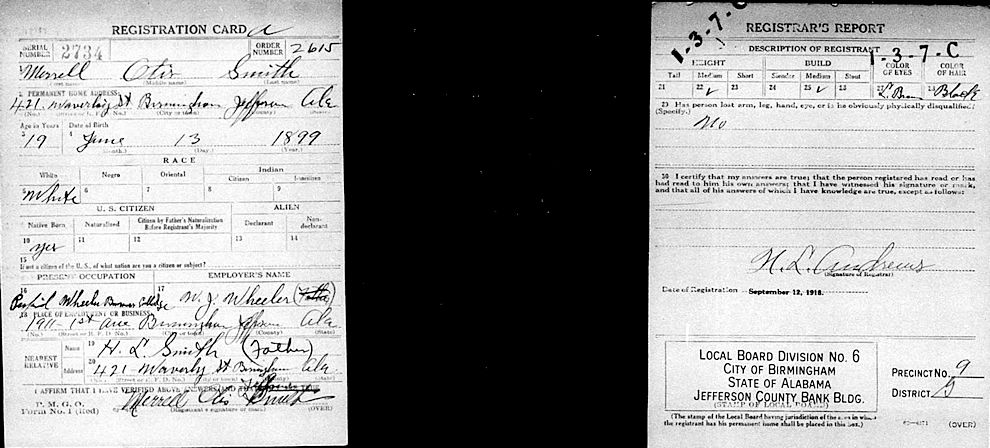 REGISTRATION CARD
SERIAL NUMBER 2734 ORDER NUMBER 2615
1 Merrell Otis Smith
(First name) (Middle name) (Last name)
2 PERMANENT HOME ADDRESS:
421 Waverly St Birmingham Jefferson Ala
(No.) (Street or R. F. D. No.) (City or town) (County) (State)
Age in Years Date of Birth
3 19 4 June 13 1899
(Month.) (Day.) (Year.)
RACE
White Negro Oriental Indian
Citizen Noncitizen
5 6 7 8 9
White
U. S. CITIZEN ALIEN
Native Born Naturalized Citizen by Father's Naturalization Before Registrant's Majority Declarant Non-declarant
10 11 12 13 14
yes
15
If not a citizen of the U. S., of what nation are you a citizen or subject?
PRESENT OCCUPATION EMPLOYER'S NAME
16 Wheeler Business 17 W. J. Wheeler
18 PLACE OF EMPLOYMENT OR BUSINESS:
1911-1st ave Birmingham Jefferson Ala
(No.) (Street or R. F. D. No.) (City or town) (County) (State)
NEAREST RELATIVE Name 19 H. L. Smith (Father)
Address 20 421- Waverly St Birmingham Ala
(No.) (Street or R. F. D. No.) (City or town) (County) (State)
I AFFIRM THAT I HAVE VERIFIED ABOVE ANSWERS AND THAT THEY ARE TRUE
P. M. G. O.
Form No. 1 (Red) Merrell Otis Smith
(Registrant's signature or mark) (OVER)
1-3-7-C
REGISTRAR'S REPORT
DESCRIPTION OF REGISTRANT
1-3-7-C
HEIGHT BUILD COLOR OF EYES COLOR OF HAIR
Tall Medium Short Slender Medium Stout
21 22 ✓ 23 24 25 ✓ 26 27 28 Black
29 Has person lost arm, leg, hand, eye, or is he obviously physically disqualified?
(Specify.) No
30 I certify that my answers are true; that the person registered has read or has
had read to him his own answers; that I have witnessed his signature or mark,
and that all of his answers of which I have knowledge are true, except as follows:
H. L. Andrews
(Signature of Registrar)
Date of Registration September 12, 1918.
LOCAL BOARD DIVISION No. 6
CITY OF BIRMINGHAM
STATE OF ALABAMA
JEFFERSON COUNTY BANK BLDG.
PRECINCT No. 9
DISTRICT
(STAMP OF LOCAL BOARD)
(The stamp of the Local Board having jurisdiction of the area in which
the registrant has his permanent home shall be placed in this box.)
(OVER)